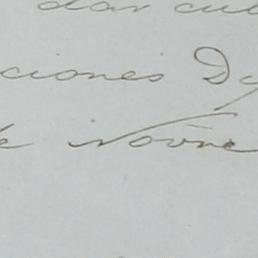 dar cu
ciones D
de Novre